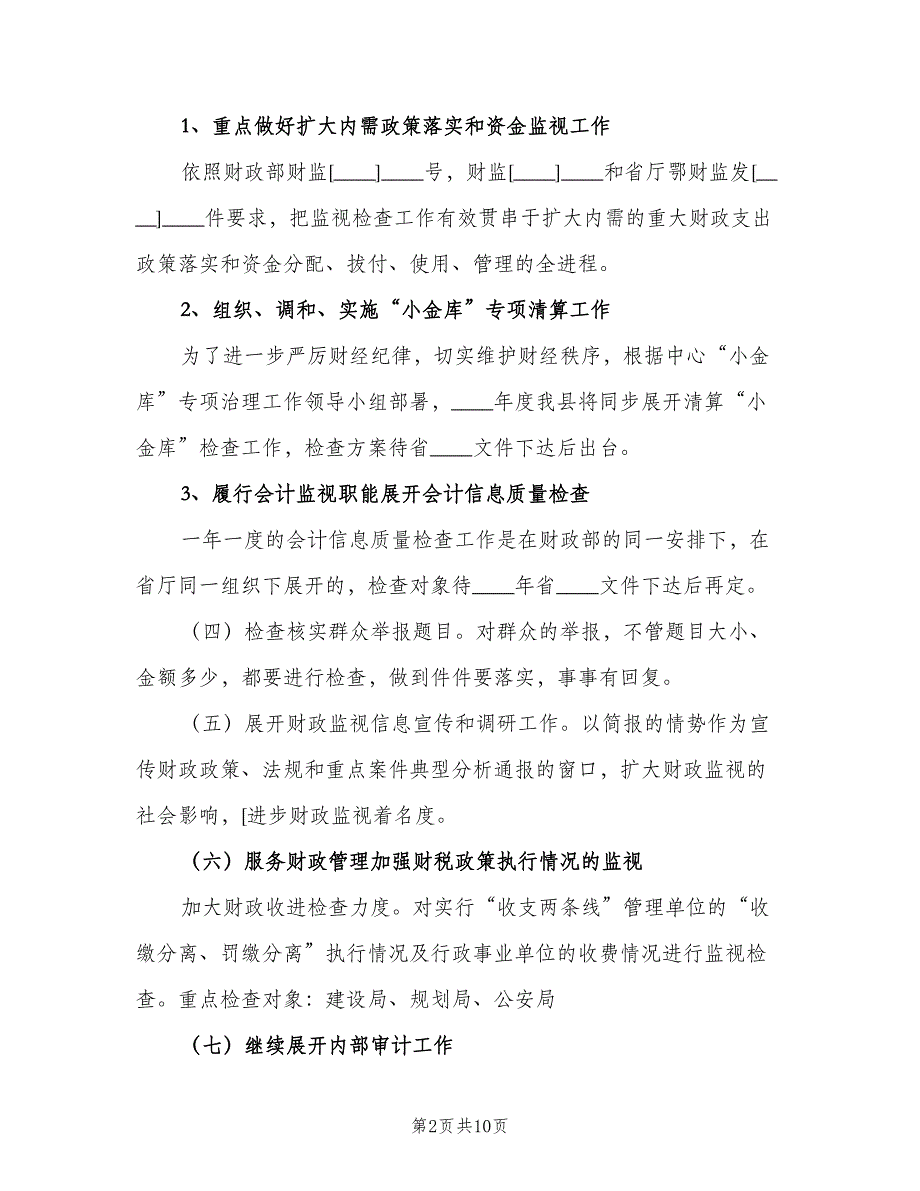 1、重点做好扩大内需政策落实和资金监视工作
依照财政部财监[____]____号，财监[____]____和省厅鄂财监发[__
__]____件要求，把监视检查工作有效贯串于扩大内需的重大财政支出
政策落实和资金分配、拔付、使用、管理的全进程。
2、组织、调和、实施“小金库”专项清算工作
为了进一步严厉财经纪律，切实维护财经秩序，根据中心“小金
库”专项治理工作领导小组部署，____年度我县将同步展开清算“小
金库”检查工作，检查方案待省____文件下达后出台。
3、履行会计监视职能展开会计信息质量检查
一年一度的会计信息质量检查工作是在财政部的同一安排下，在
省厅同一组织下展开的，检查对象待____年省____文件下达后再定。
（四）检查核实群众举报题目。对群众的举报，不管题目大小、
金额多少，都要进行检查，做到件件要落实，事事有回复。
（五）展开财政监视信息宣传和调研工作。以简报的情势作为宣
传财政政策、法规和重点案件典型分析通报的窗口，扩大财政监视的
社会影响，[进步财政监视着名度。
（六）服务财政管理加强财税政策执行情况的监视
加大财政收进检查力度。对实行“收支两条线”管理单位的“收
缴分离、罚缴分离”执行情况及行政事业单位的收费情况进行监视检
查。重点检查对象：建设局、规划局、公安局
（七）继续展开内部审计工作
第2页共10页